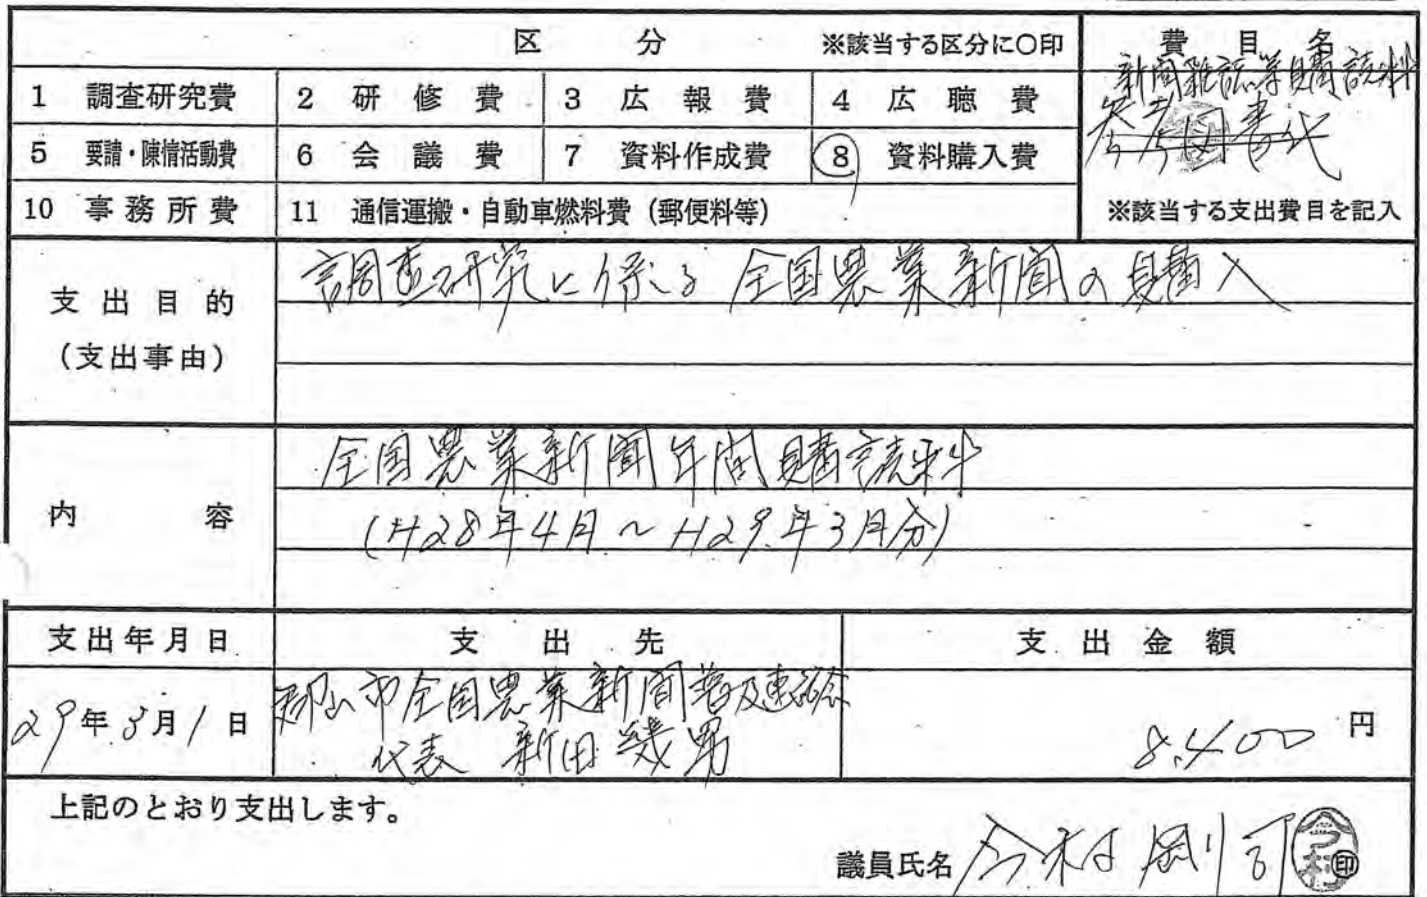 区 分 ※該当する区分に〇印
費 目 名
新聞雑誌等購読料
参考図書代
1 調査研究費 2 研 修 費 3 広 報 費 4 広 聴 費
5 要請・陳情活動費 6 会 議 費 7 資料作成費 8 資料購入費
10 事 務 所 費 11 通信運搬・自動車燃料費(郵便料等)
※該当する支出費目を記入
支 出 目 的
(支出事由)
調査研究に係る全国農業新聞の購入
内 容
全国農業新聞年間購読料
(H28年4月~H29年3月分)
支出年月日 支 出 先 支 出 金 額
29年3月1日
郡山市全国農業新聞普及連絡会
代表 新田 幾男
8,400円
上記のとおり支出します。
議員氏名 今村剛司 印
今村